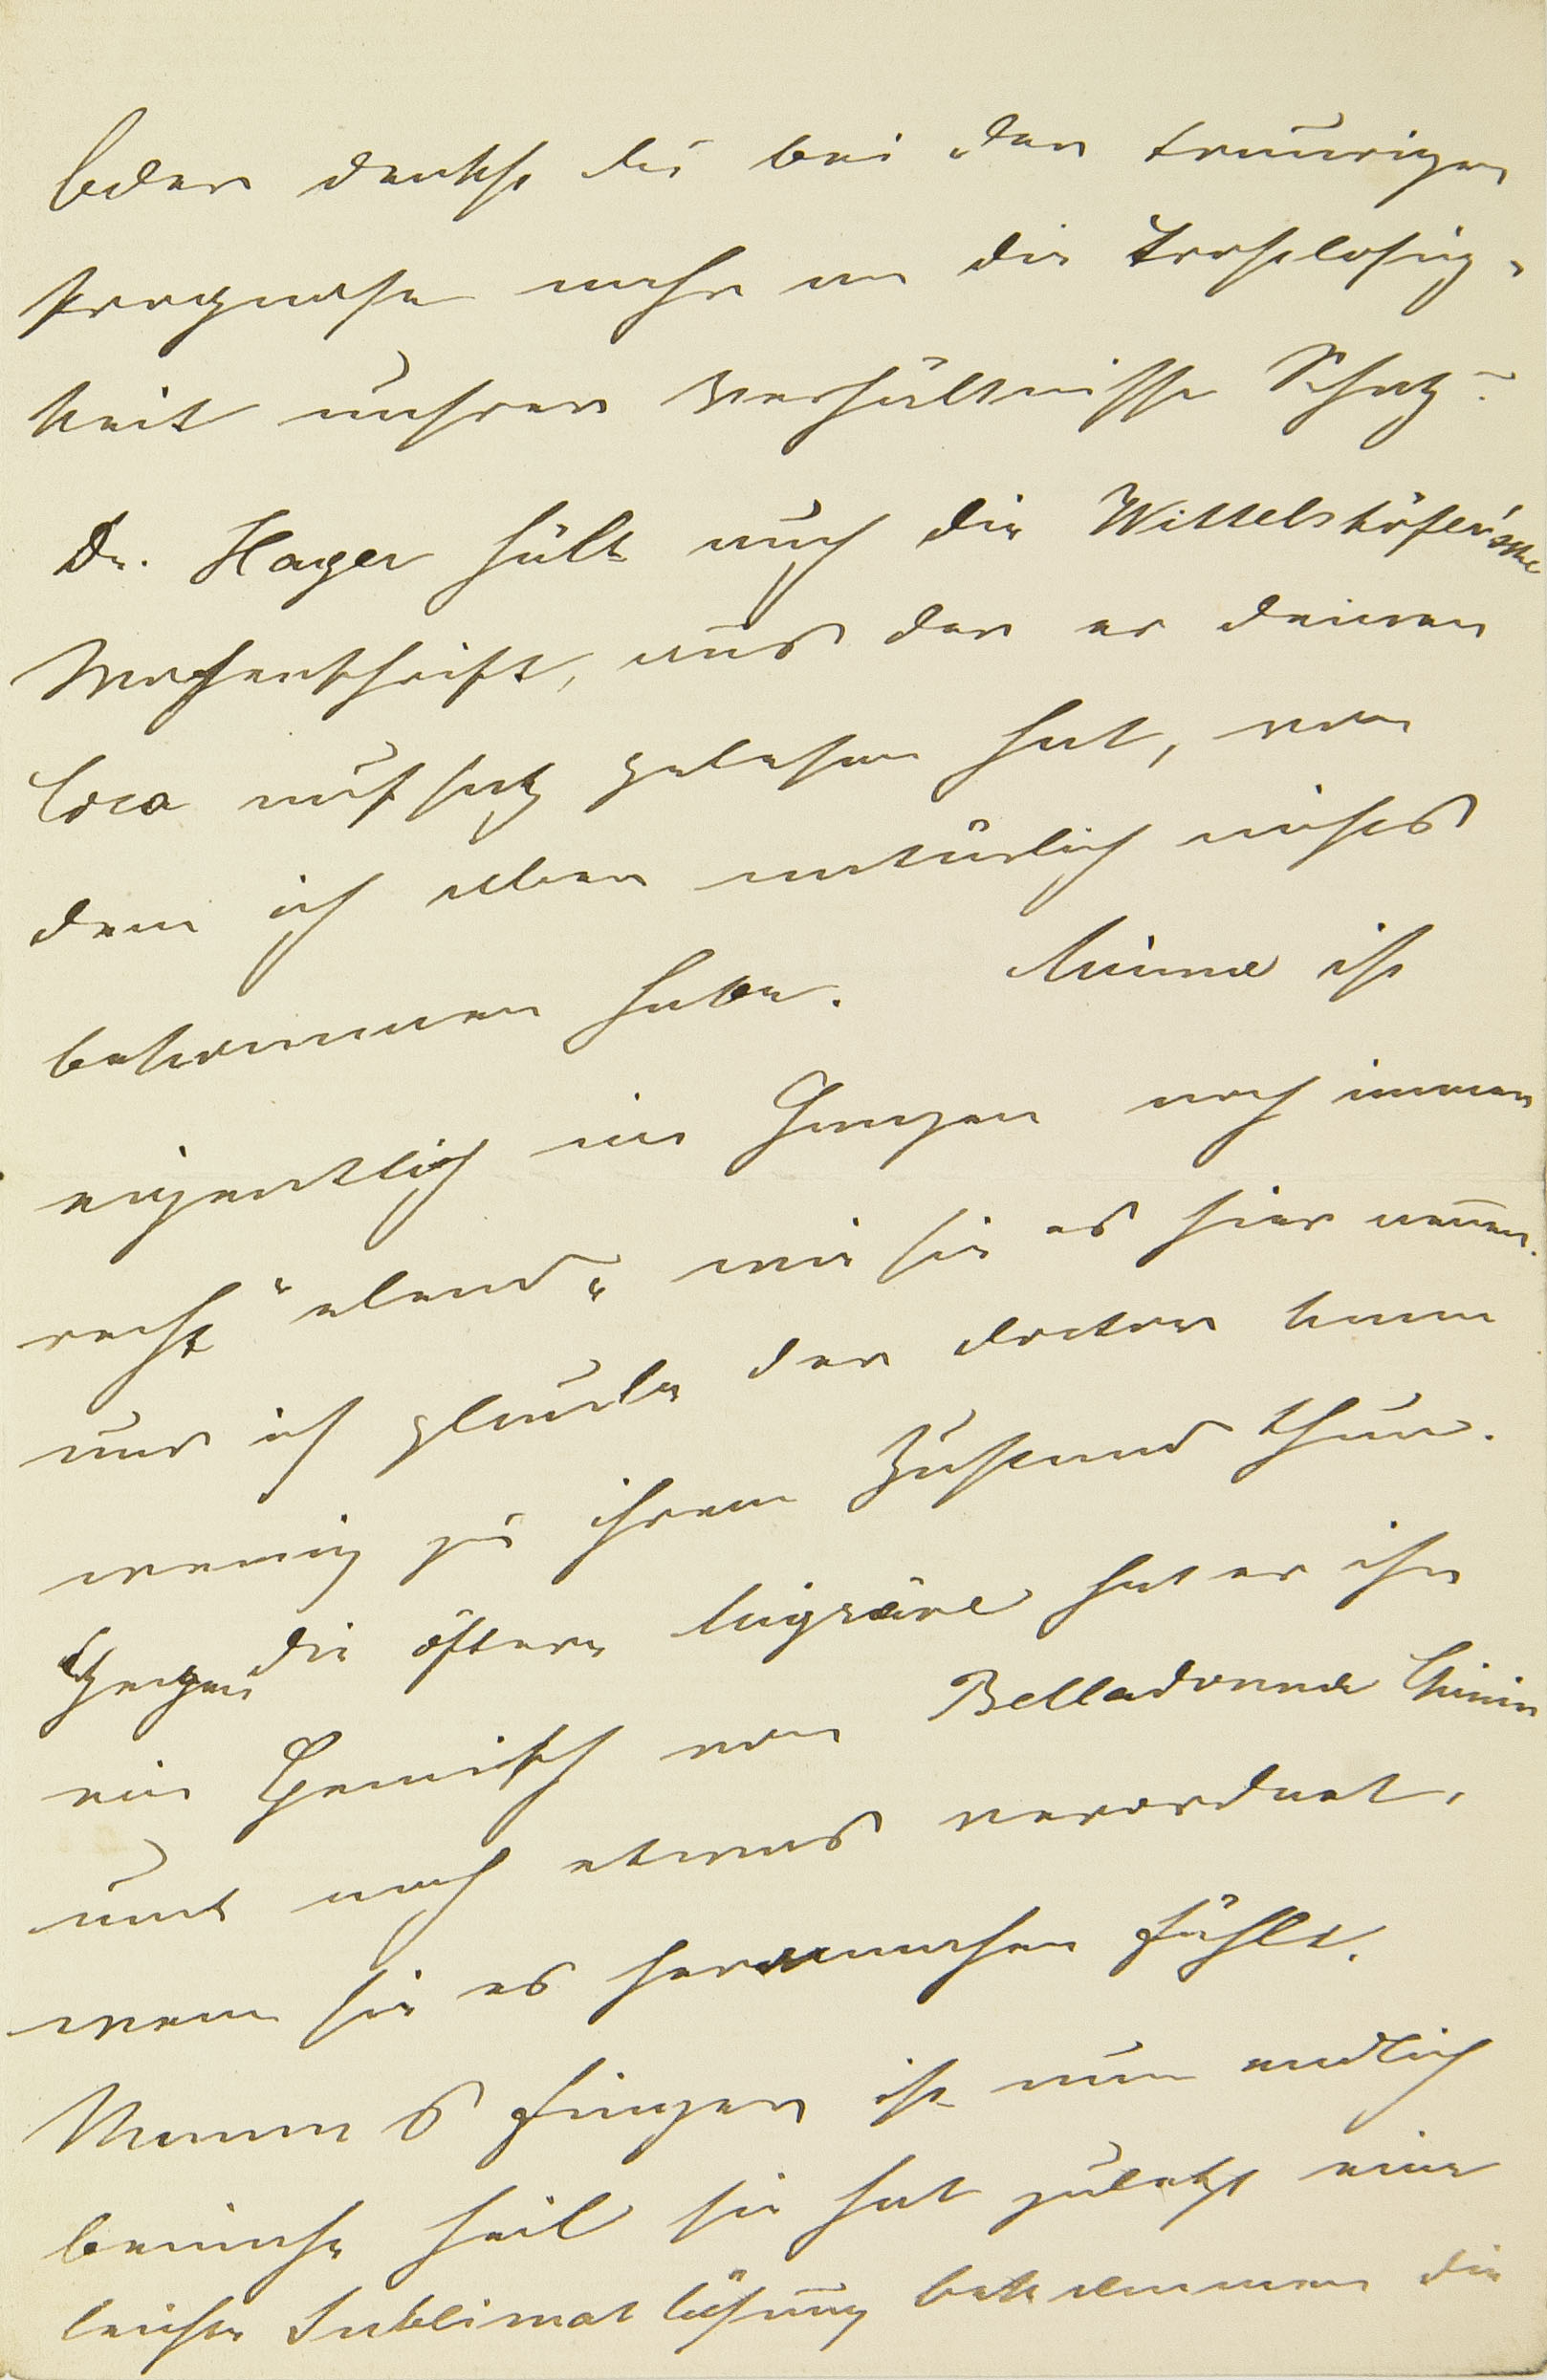 Oder denkst du bei der traurigen
Prognose mehr an die Trostlosig-
keit unsrer Verhältnisse Schatz?
Dr. Hager hält auch die Wittelshöfer'sche
Wochenschrift, aus der er deinen
Coca aufsatz gelesen hat, von
dem ich aber natürlich nichts
bekommen habe. Minna ist
eigentlich im Ganzen noch immer
recht "elend" wie sie es hier nennen.
und ich glaube der doctor kann
wenig zu ihrem Zustand thun.
Gegen die öftere Migräne hat er ihr
ein Gemisch von Belladonna Chinin
und noch etwas verordnet,
wenn sie es herannahen fühlt.
Mama s Finger ist nun endlich
beinahe heil sie hat zuletzt eine
leichte Sublimat lösung bekommen die